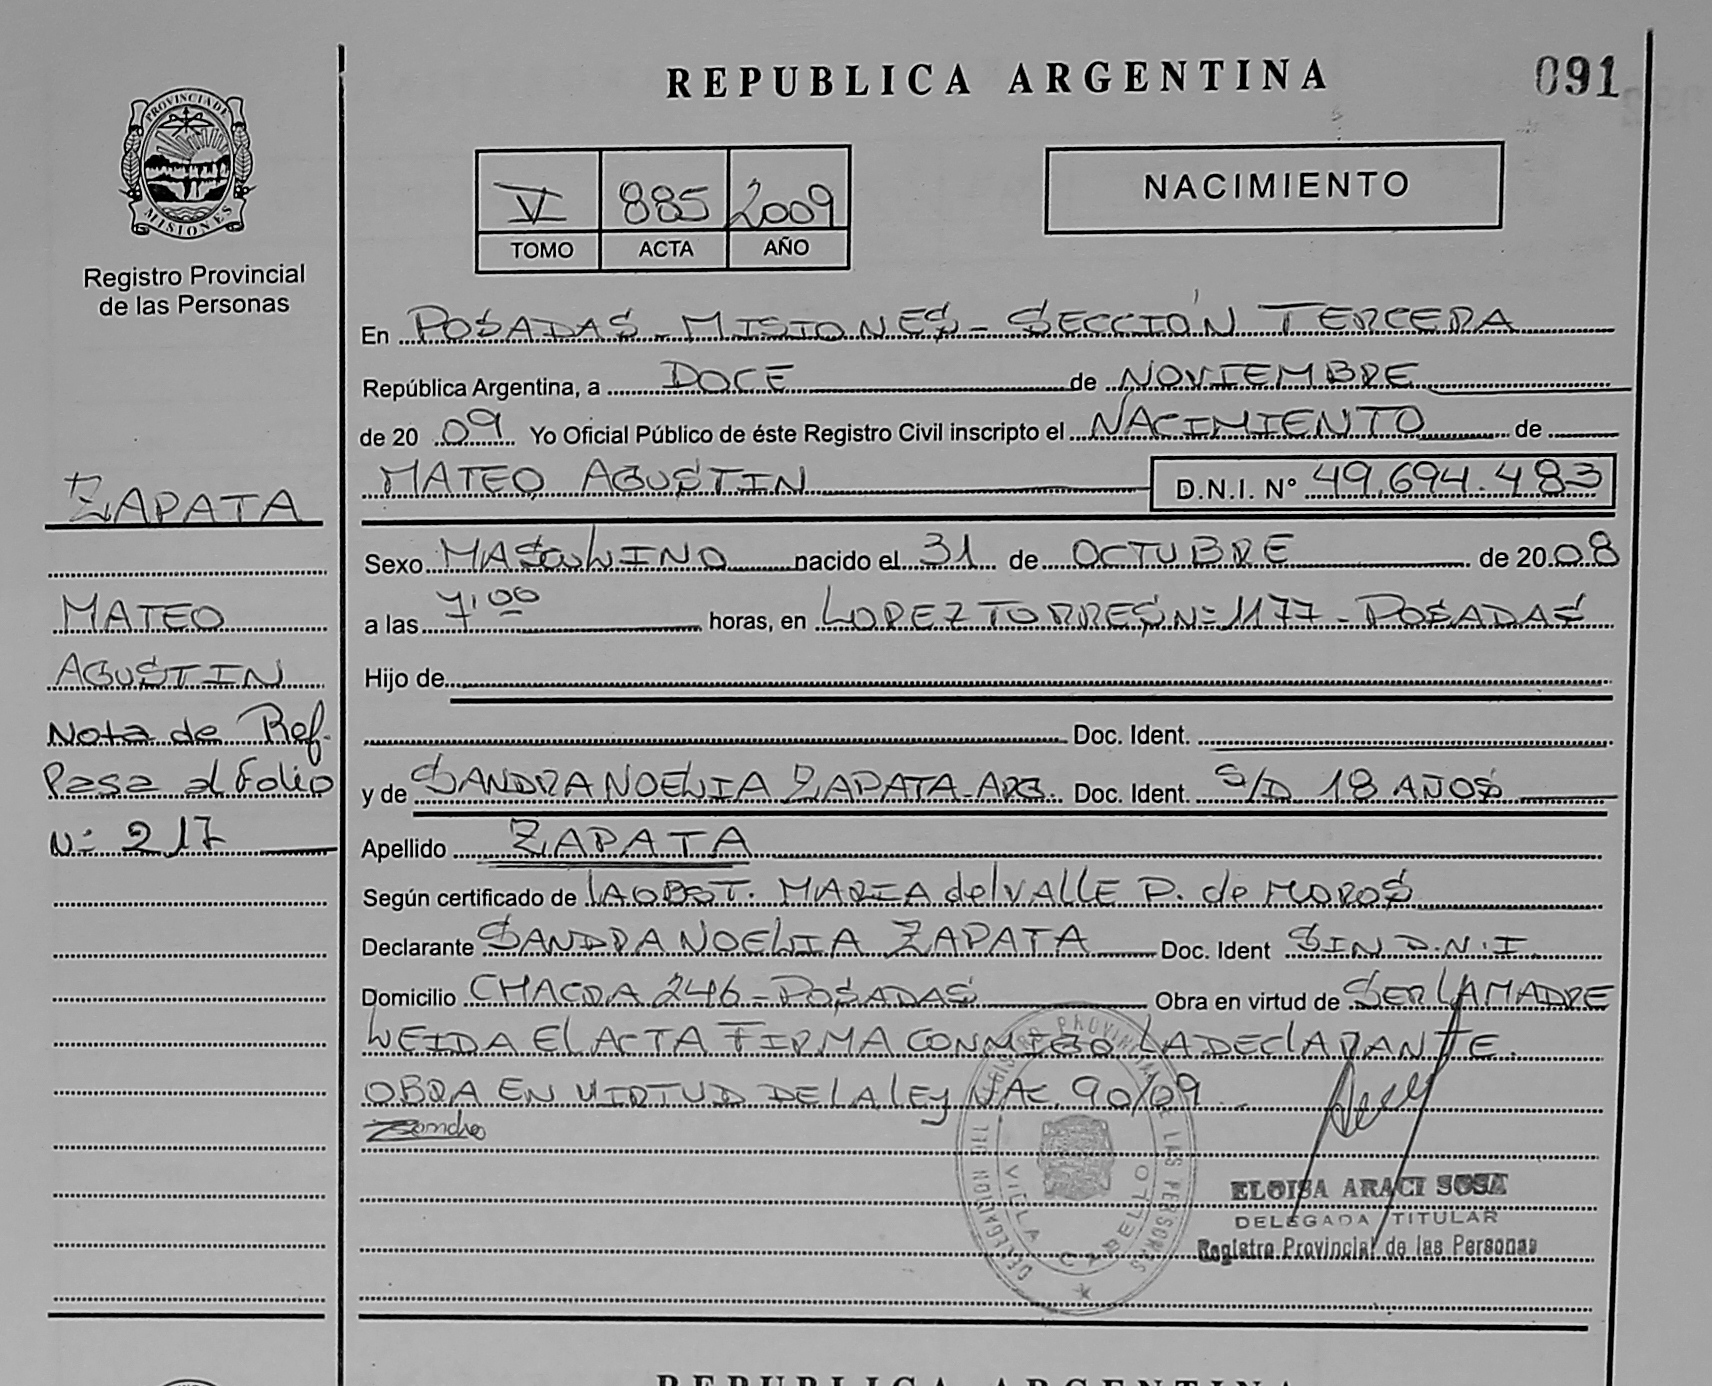 REPUBLICA ARGENTINA
091
PROVINCIA DE MISIONES
Registro Provincial
de las Personas
V 885 2009
TOMO ACTA AÑO
NACIMIENTO
En POSADAS - MISIONES - SECCIÓN TERCERA
República Argentina, a DOCE de NOVIEMBRE
de 20 09 Yo Oficial Público de éste Registro Civil inscripto el NACIMIENTO de
MATEO AGUSTIN D.N.I. Nº 49.694.483
ZAPATA
Sexo MASCULINO nacido el 31 de OCTUBRE de 20 08
MATEO
a las 7,00 horas, en LOPEZ TORRES Nº 1177 - POSADAS
AGUSTIN
Hijo de
Nota de Ref.
Doc. Ident.
Pasa al Folio
y de SANDRA NOELIA ZAPATA ARG. Doc. Ident. S/D 18 AÑOS
Nº 217
Apellido ZAPATA
Según certificado de LA OBST. MARIA del VALLE P. de MOROS
Declarante SANDRA NOELIA ZAPATA Doc. Ident SIN D.N.I.
Domicilio CHACRA 246 - POSADAS Obra en virtud de SER LA MADRE
LEIDA El ACTA FIRMA CONMIGO LA DEClARANTE.
OBRA EN VIRTUD DE LA lEy NAC. 90/09
DELEGACION DEL REGISTRO PROVINCIAL DE LAS PERSONAS
VILLA CABELLO
ELOISA ARACI SOSA
DELEGADA TITULAR
Registro Provincial de las Personas
REPUBLICA ARGENTINA